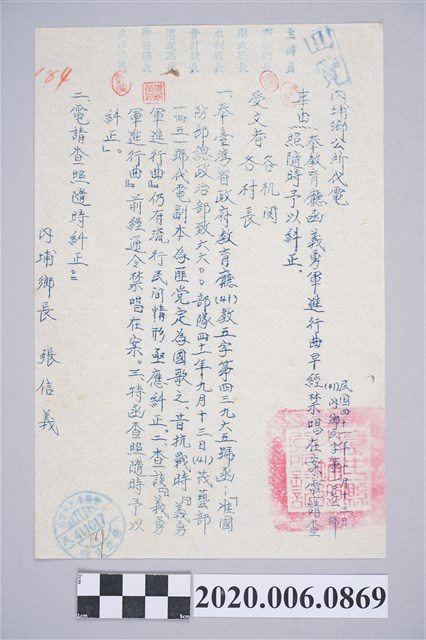 主席
民政股長
財政股長
水利股長
會計股長
184
內埔鄉公所代電
民國四十一年十月十三日
事由:奉教育廳函義勇軍進行曲早經禁唱在案電請查
照隨時予以糾正、
受文者 各機関
各村長
一、奉臺灣省政府教育廳(41)教五字第四三九六五號函:「准國
防部總政治部致六六〇〇部隊四十一年九月十三日(41)茂藝部
一四五一號代電副本為匪党定為國歌之、昔抗戰時『義勇
軍進行曲』仍有流行民間情形亟應糾正二查該『義勇
軍進行曲』前經通令禁唱在案。三、特函查照隨時予以
糾正」。
二、電請查照隨時糾正。
內埔鄉長 張信義
411017
5cm
2020.006.0869